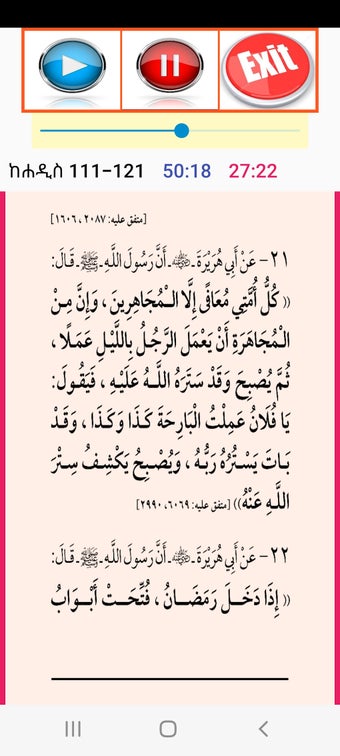 Exit
ከሐዲስ 111-121 50:18 27:22
[متفق عليه: ٢٠٨٧ ، ١٦٠٦]
٢١- عَنْ أَبِي هُرَيْرَةَ ـ رضي الله عنه ـ أَنَّ رَسُولَ اللَّهِ ـ ﷺ ـ قَالَ:
(( كُلُّ أُمَّتِي مُعَافًى إِلَّا الْمُجَاهِرِينَ ، وَإِنَّ مِنَ
الْمُجَاهَرَةِ أَنْ يَعْمَلَ الرَّجُلُ بِاللَّيْلِ عَمَلًا ،
ثُمَّ يُصْبِحَ وَقَدْ سَتَرَهُ اللَّهُ عَلَيْهِ ، فَيَقُولَ:
يَا فُلَانُ عَمِلْتُ الْبَارِحَةَ كَذَا وَكَذَا ، وَقَدْ
بَاتَ يَسْتُرُهُ رَبُّهُ ، وَيُصْبِحُ يَكْشِفُ سِتْرَ
اللَّهِ عَنْهُ)) [متفق عليه: ٦٠٦٩، ٢٩٩٠]
٢٢- عَنْ أَبِي هُرَيْرَةَ ـ رضي الله عنه ـ أَنَّ رَسُولَ اللَّهِ ـ ﷺ ـ قَالَ:
(( إِذَا دَخَلَ رَمَضَانُ ، فُتِّحَتْ أَبْوَابُ